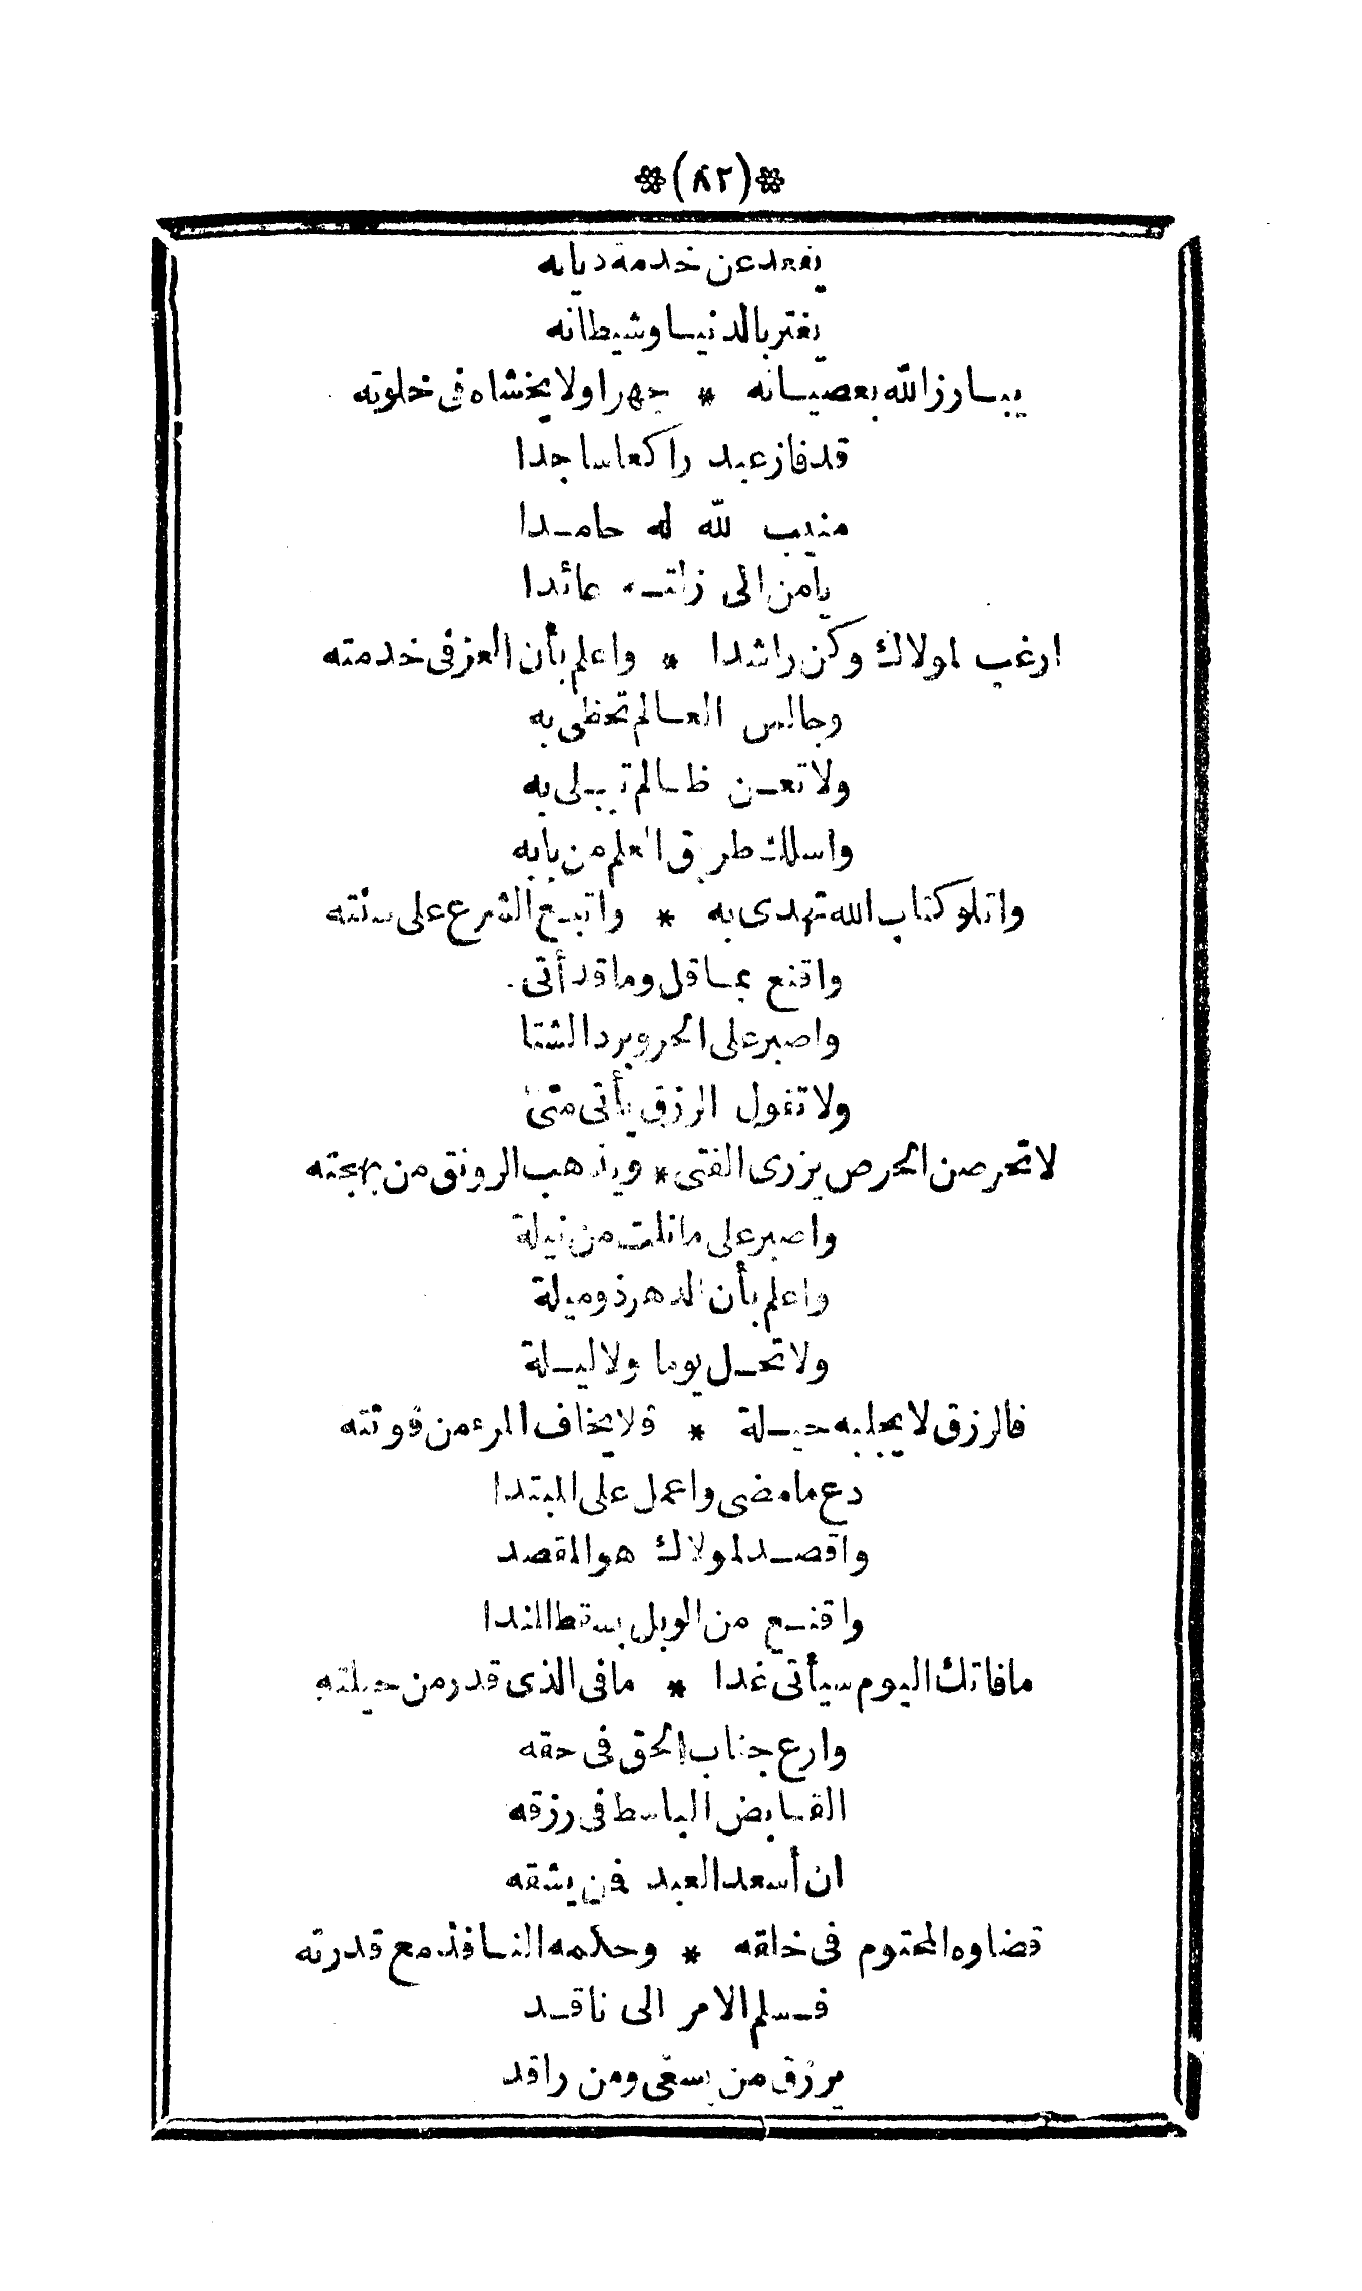 ❊(٨٢)❊
يقعد عن خدمة ديانه
يغتر بالدنيا وشيطانه
يبارز الله بعصيانه * جهرا ولا يخشاه فى خلوته
قد فاز عبد راكعا ساجدا
منيب لله له حامدا
يامن الى زلته عائدا
ارغب لمولاك وكن راشدا * واعلم بأن العز فى خدمته
وجالس العالم تحظى به
ولا تعن ظالم تبلى به
واسلك طريق العلم من بابه
واتلو كتاب الله تهدى به * واتبع الشرع على سنته
واقنع بما قل وما قد أتى
واصبر على الحر وبرد الشتا
ولا تقول الرزق يأتى متى
لا تحرصن الحرص يزرى الفتى * ويذهب الرونق من بهجته
واصبر على ما نلت من نيلة
واعلم بأن الدهر ذو ميلة
ولا تحل يوما ولا ليلة
فالرزق لا يجلبه حيلة * ولا يخاف المرء من فوتته
دع ما مضى واعمل على المبتدا
واقصد لمولاك هو المقصد
واقنع من الوبل بسقط الندا
ما فاتك اليوم سيأتى غدا * ما فى الذى قدر من حيلته
وارع جناب الحق فى حقه
القابض الباسط فى رزقه
ان أسعد العبد فمن يشقه
قضاوه المحتوم فى خلقه * وحكمه النافذ مع قدرته
فسلم الامر الى ناقد
يرزق من يسعى ومن راقد